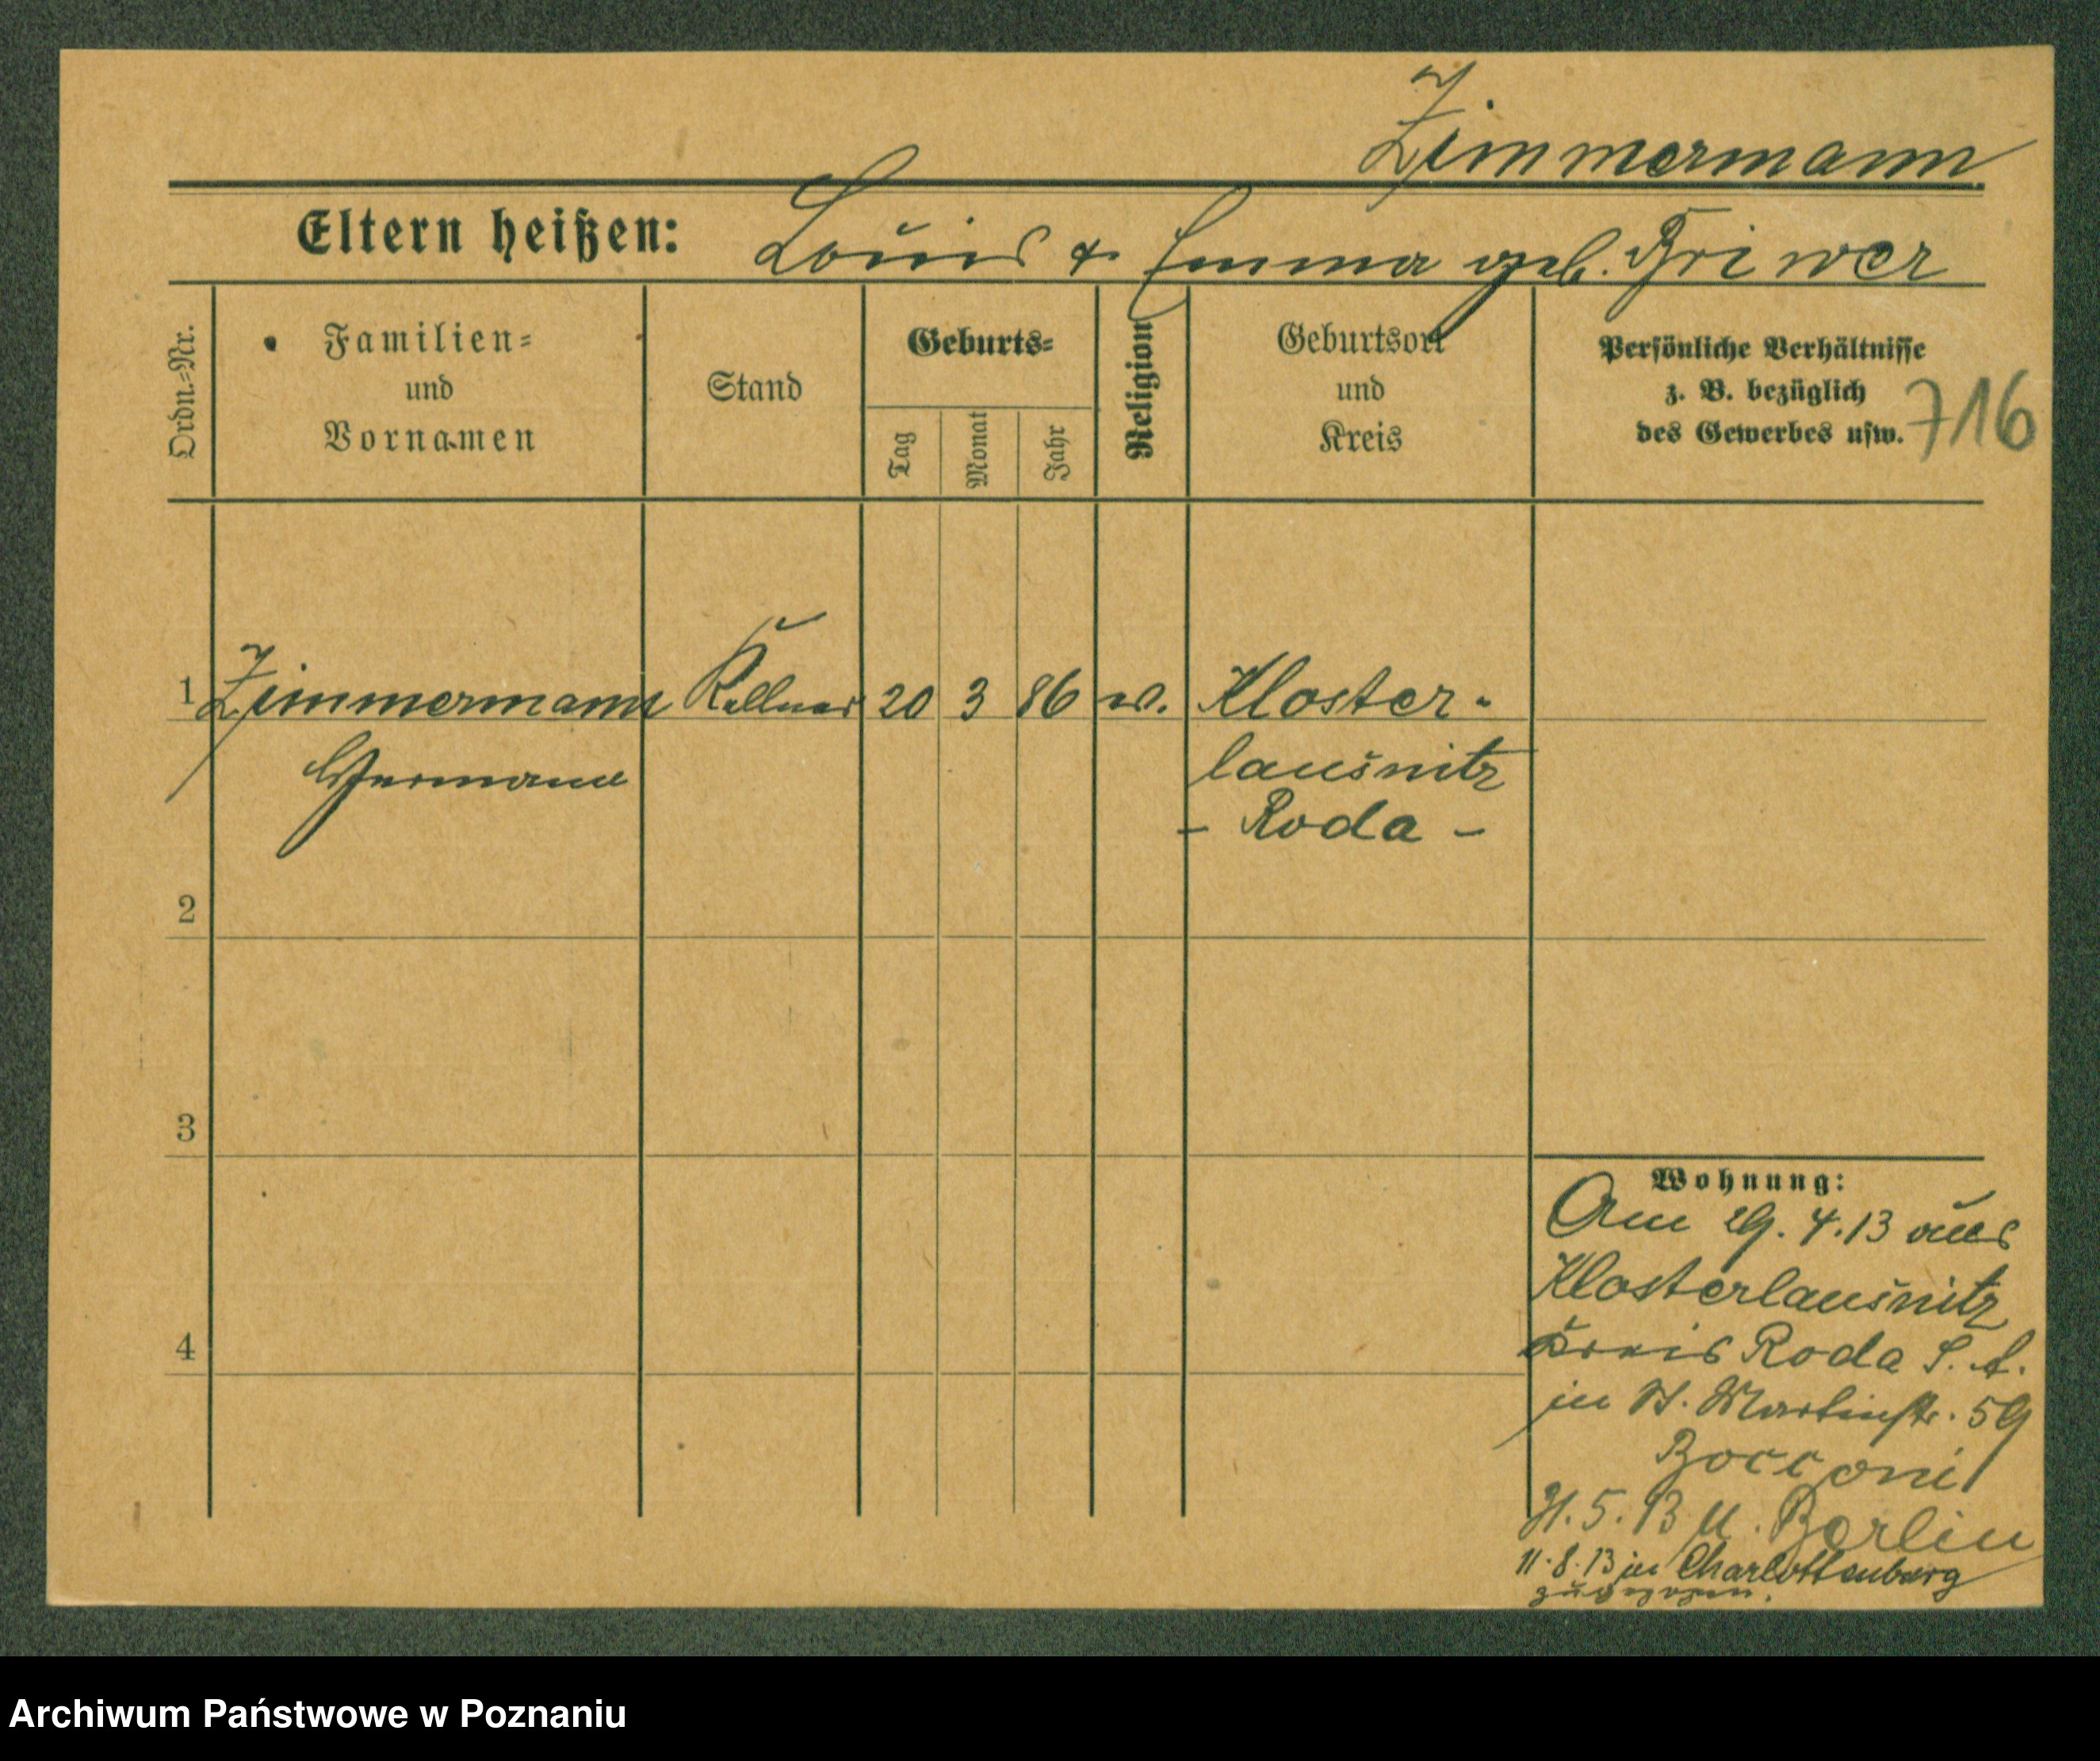 Zimmermann
Eltern heißen: Louis & Emma geb. Griwer
Ordn.=Nr.
Familien=
und
Vornamen
Stand
Geburts=
Tag
Monat
Jahr
Religion
Geburtsort
und
Kreis
Persönliche Verhältnisse
z. B. bezüglich
des Gewerbes usw.
716
1 Zimmermann Kellner 20 3 86 ev. Kloster-
Hermann lausnitz
- Roda -
2
3
4
Wohnung:
Am 29.4.13 aus
Klosterlausnitz
Kreis Roda S. A.
in St. Martinstr. 59
Bocconi
31.5.13 n. Berlin
11.8.13 in Charlottenburg
zugezogen.
Archiwum Państwowe w Poznaniu